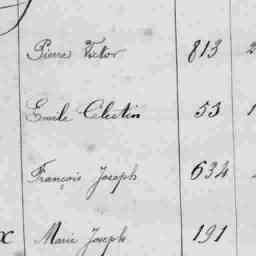 Pierre Victor 813 2
Emile Célestin 53 1
François Joseph 634
x Marie Joseph 191